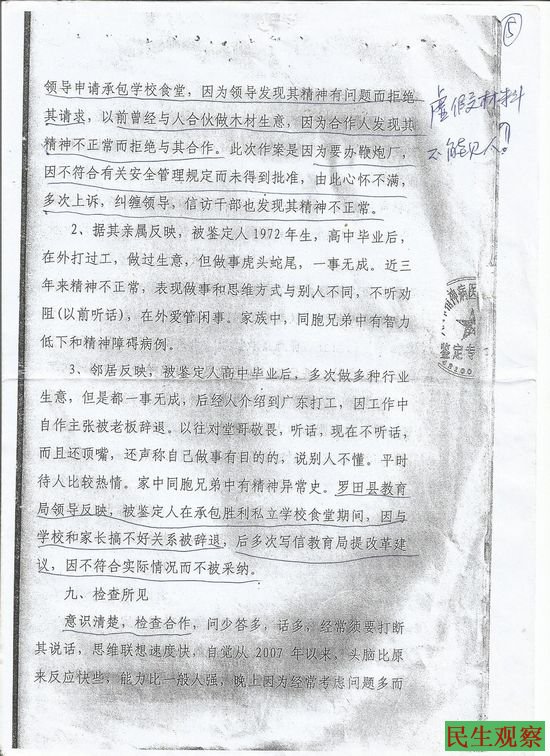 ⑤
领导申请承包学校食堂，因为领导发现其精神有问题而拒绝
其请求，以前曾经与人合伙做木材生意，因为合作人发现其
精神不正常而拒绝与其合作。此次作案是因为要办鞭炮厂，
因不符合有关安全管理规定而未得到批准，由此心怀不满，
多次上诉，纠缠领导，信访干部也发现其精神不正常。
虚假文材料
不能见人？!
2、据其亲属反映，被鉴定人1972年生，高中毕业后，
在外打过工，做过生意，但做事虎头蛇尾，一事无成。近三
年来精神不正常，表现做事和思维方式与别人不同，不听劝
阻(以前听话)，在外爱管闲事。家族中，同胞兄弟中有智力
低下和精神障碍病例。
神病医
鉴定专
3、邻居反映，被鉴定人高中毕业后，多次做多种行业
生意，但是都一事无成，后经人介绍到广东打工，因工作中
自作主张被老板辞退。以往对堂哥敬畏，听话，现在不听话，
而且还顶嘴，还声称自己做事有目的的，说别人不懂。平时
待人比较热情。家中同胞兄弟中有精神异常史。罗田县教育
局领导反映，被鉴定人在承包胜利私立学校食堂期间，因与
学校和家长搞不好关系被辞退，后多次写信教育局提改革建
议，因不符合实际情况而不被采纳。
九、检查所见
意识清楚，检查合作，问少答多，话多，经常须要打断
其说话，思维联想速度快，自觉从2007年以来，头脑比原
来反应快些，能力比一般人强，晚上因为经常考虑问题多而
民生观察